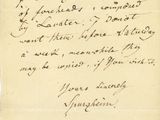 of foreheads, composed
by Lavater. I do not
want them before Saturday
a week, meanwhile they
may be copied, if you wish it.
Yours sincerely
Spurzheim.